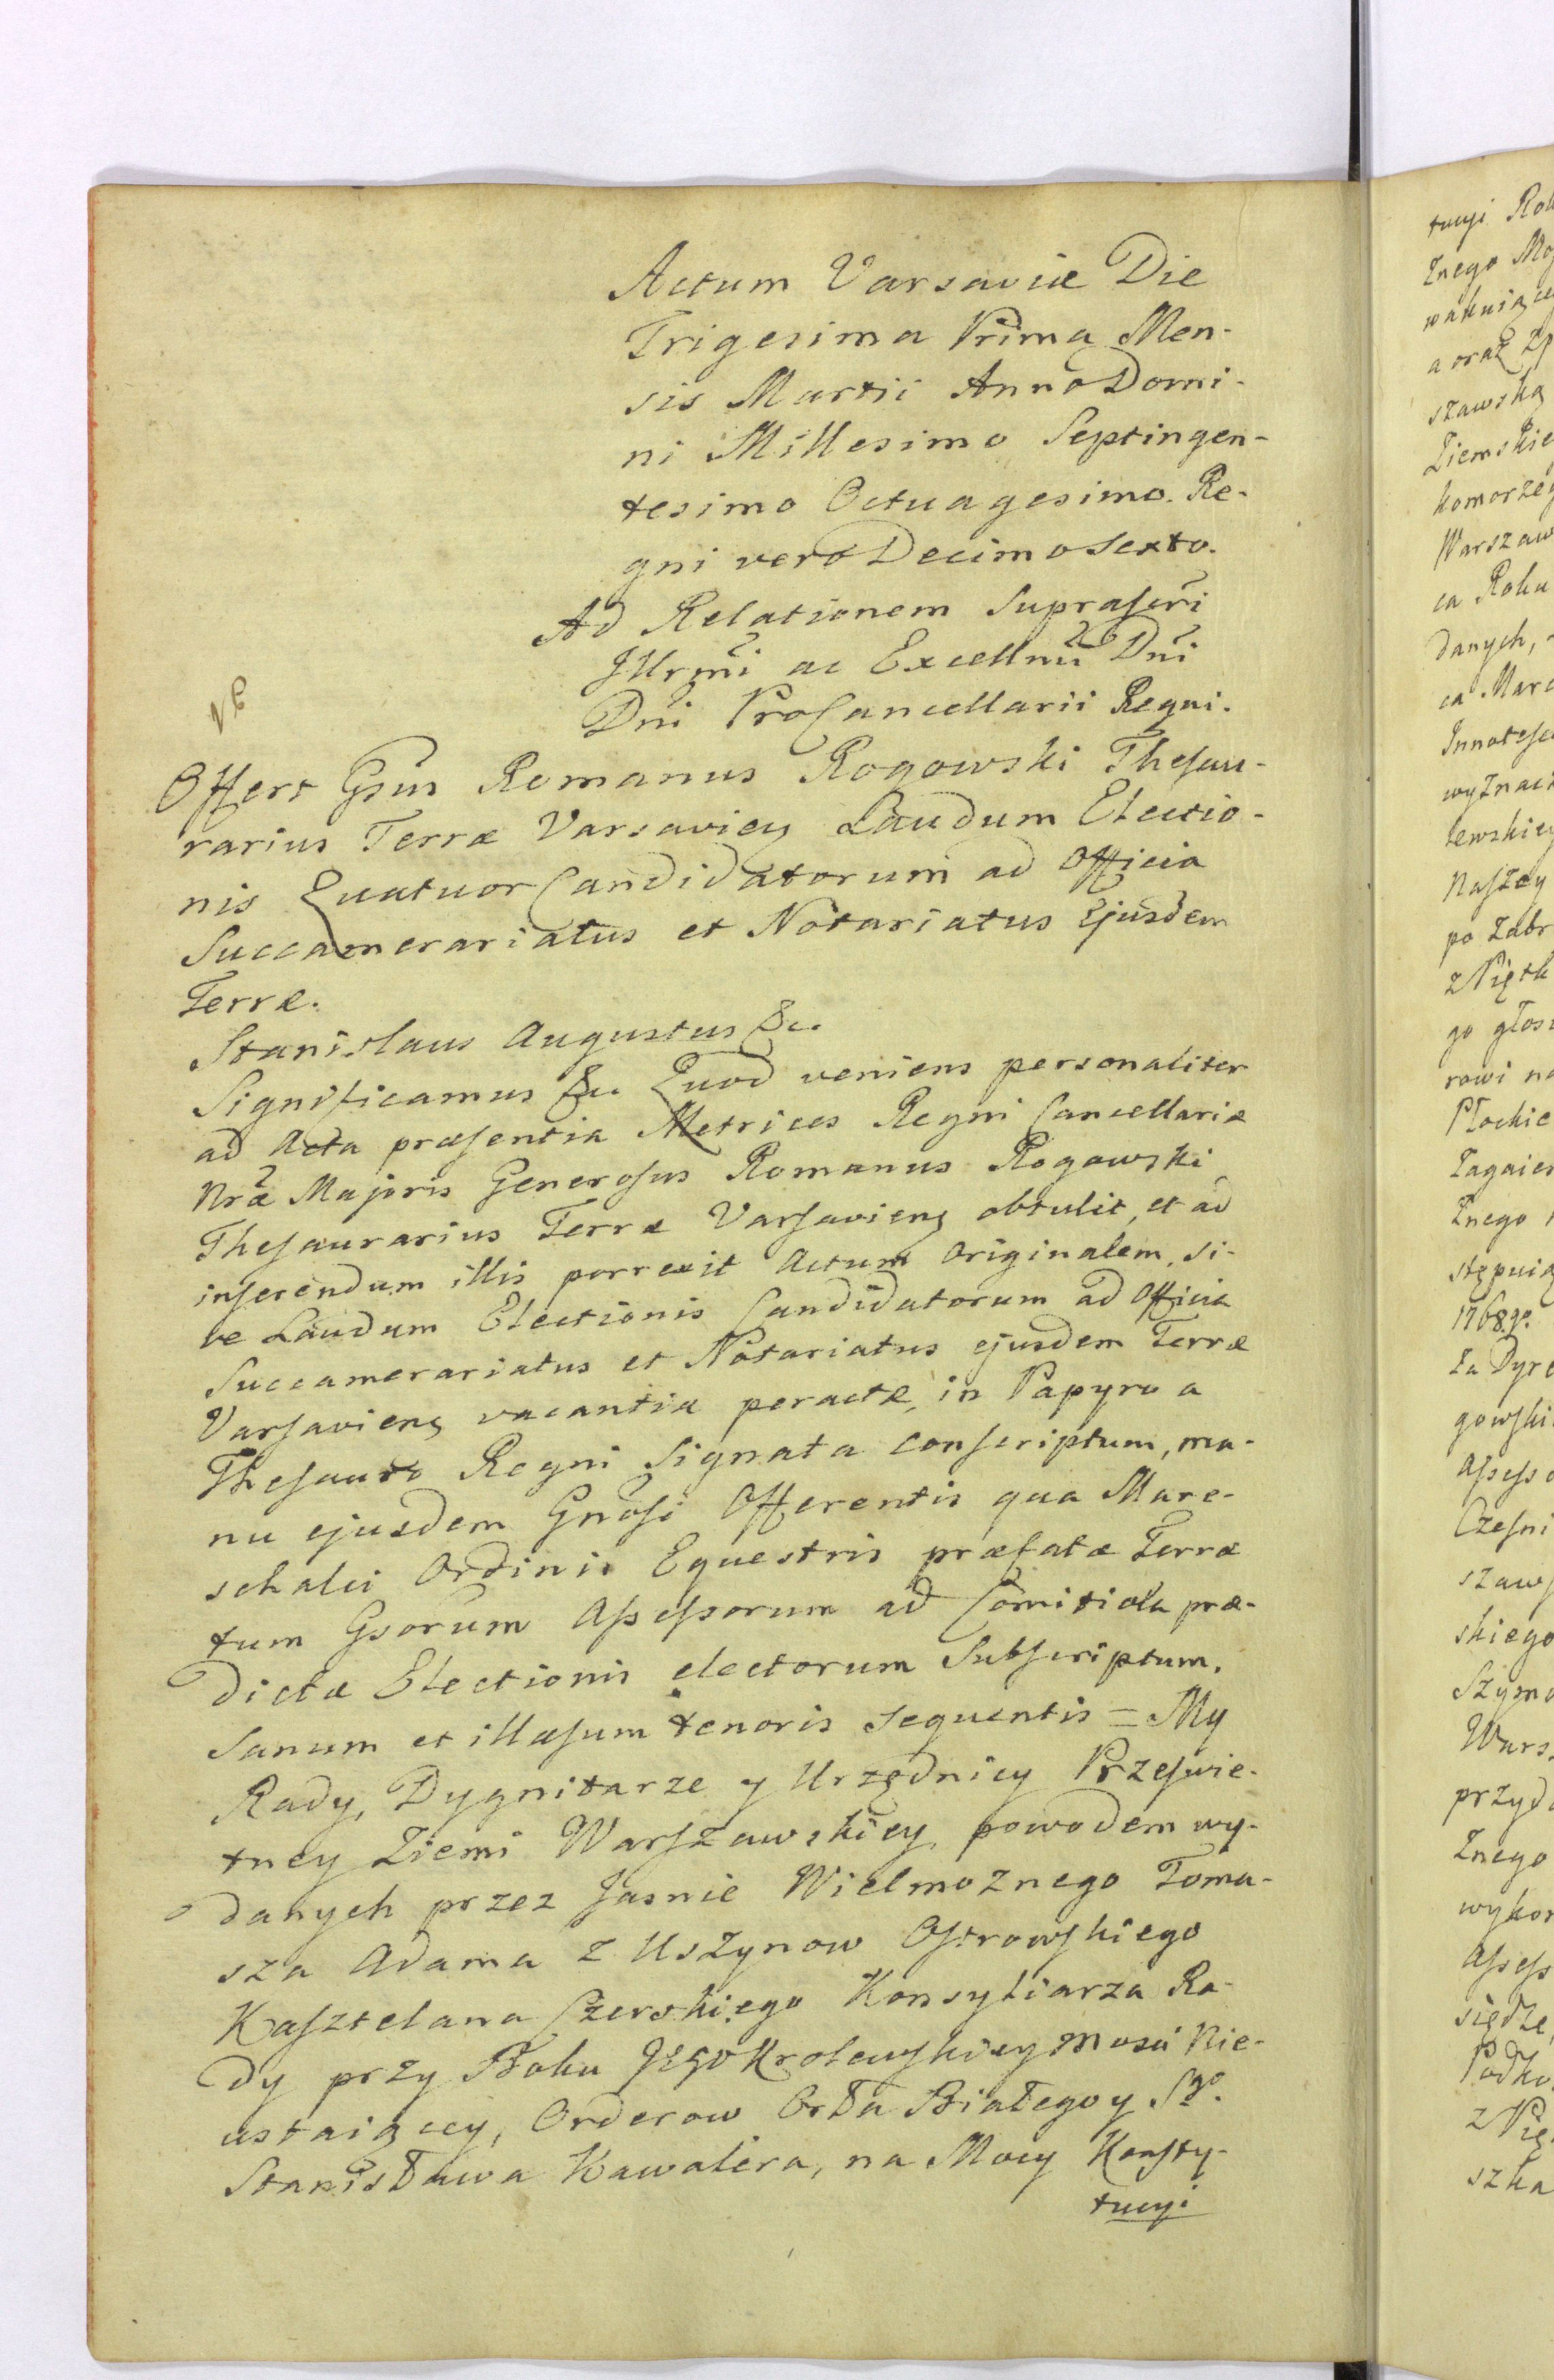 Actum Varsaviæ Die
Trigesima Prima Men-
sis Martii Anno Domi-
ni Millesimo Septingen-
tesimo Octuagesimo. Re-
gni vero Decimo Sexto.
Ad Relationem Suprascri
Illrmi ac Excellmi Dni
Dni ProCancellarii Regni.
NB
Offert Gsus Romanus Rogowski Thesau-
rarius Terræ Varsavien Laudum Electio-
nis Quatuor Candidatorum ad Officia
Succamerariatus et Notariatus Ejusdem
Terræ.
Stanislaus Augustus &c.
Significamus &c. Quod veniens personaliter
ad Acta præsentia Metrices Regni Cancellariæ
Nræ Majoris Generosus Romanus Rogowski
Thesaurarius Terræ Varsavien obtulit, et ad
inserendum illis porrexit Actum Originalem, si-
ve Laudum Electionis Candidatorum ad Officia
Succamerariatus et Notariatus ejusdem Terræ
Varsavien vacantia peractæ, in Papyro a
Thesauro Regni Signata conscriptum, ma-
nu ejusdem Gnosi Offerentis qua Mare-
schalci Ordinis Equestris præfatæ Terræ
tum Gsorum Assessorum ad Comitiola præ-
dictæ Electionis electorum Subscriptum.
Sanum et illæsum tenoris sequentis = My
Rady, Dygnitarze y Urzędnicy Przeswie-
tney Ziemi Warszawskiey powodem wy-
danych przez Jasnie Wielmożnego Toma-
sza Adama z Uszynow Ostrowskiego
Kasztelana Czerskiego Konsyliarza Ra-
dy przy Boku JEGO Krolewskiey Mosci Nie-
ustaiącey, Orderow Orła Białego y Sgo.
Stanisława Kawalera, na Mocy Konsty-
tucyi
tucyi
Żnego
szawską
Ziemskie
Warszaw
ca Roku
danych,
Naszey
po
Żnego
1768go.
szaw
skiego
przyd
Żnego
szka